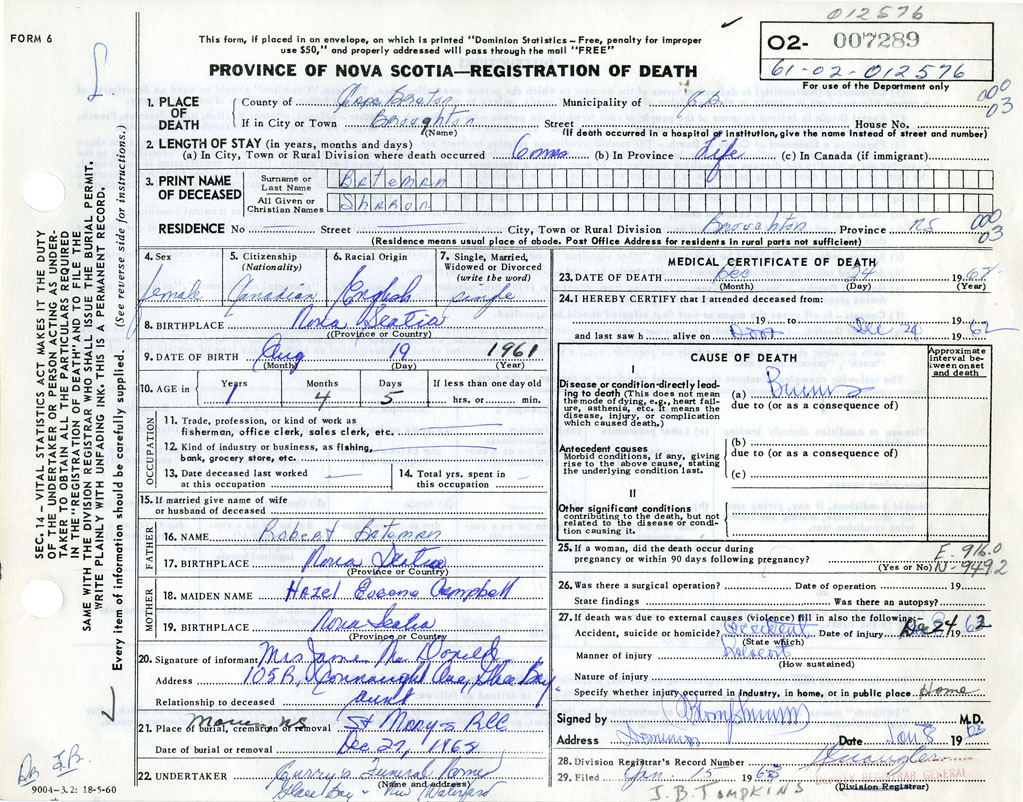 012576
FORM 6
This form, if placed in an envelope, on which is printed "Dominion Statistics – Free, penalty for improper
use $50," and properly addressed will pass through the mail "FREE"
O2- 007289
61-02-012576
For use of the Department only
PROVINCE OF NOVA SCOTIA—REGISTRATION OF DEATH
000
03
1. PLACE OF DEATH
County of Cape Breton Municipality of C.B.
If in City or Town Broughton Street House No.
(Name) (If death occurred in a hospital or institution, give the name instead of street and number)
2. LENGTH OF STAY (in years, months and days)
(a) In City, Town or Rural Division where death occurred 6 mns (b) In Province Life (c) In Canada (if immigrant)
3. PRINT NAME OF DECEASED
Surname or Last Name Bateman
All Given or Christian Names Sharon
RESIDENCE No. Street City, Town or Rural Division Broughton Province NS
000
03
(Residence means usual place of abode. Post Office Address for residents in rural parts not sufficient)
4. Sex female
5. Citizenship (Nationality) Canadian
6. Racial Origin English
7. Single, Married, Widowed or Divorced (write the word) single
8. BIRTHPLACE Nova Scotia
(Province or Country)
9. DATE OF BIRTH Aug 19 1961
(Month) (Day) (Year)
10. AGE in Years Months Days If less than one day old
1 4 5 hrs. or min.
OCCUPATION
11. Trade, profession, or kind of work as
fisherman, office clerk, sales clerk, etc.
12. Kind of industry or business, as fishing,
bank, grocery store, etc.
13. Date deceased last worked
at this occupation
14. Total yrs. spent in
this occupation
15. If married give name of wife
or husband of deceased
FATHER
16. NAME Robert Bateman
17. BIRTHPLACE Nova Scotia
(Province or Country)
MOTHER
18. MAIDEN NAME Hazel Campbell
19. BIRTHPLACE Nova Scotia
(Province or Country)
20. Signature of informant Mrs James Mc Donald
Address 105 R, Connaught Ave, Glace Bay
Relationship to deceased aunt
21. Place of burial, cremation or removal NS St Mary's RCC
Date of burial or removal Dec 27, 1962
22. UNDERTAKER Curry's Funeral Home
(Name and address)
Glace Bay - New Waterford
9004—3.2: 18-5-60
MEDICAL CERTIFICATE OF DEATH
23. DATE OF DEATH Dec 24 1962
(Month) (Day) (Year)
24. I HEREBY CERTIFY that I attended deceased from:
19 to 19
and last saw h alive on Dec 24 1962
CAUSE OF DEATH
Approximate interval between onset and death
I
Disease or condition directly leading to death (This does not mean the mode of dying, e.g., heart failure, asthenia, etc. It means the disease, injury, or complication which caused death.)
(a) Burns
due to (or as a consequence of)
Antecedent causes
Morbid conditions, if any, giving rise to the above cause, stating the underlying condition last.
(b)
due to (or as a consequence of)
(c)
II
Other significant conditions
contributing to the death, but not related to the disease or condition causing it.
25. If a woman, did the death occur during
pregnancy or within 90 days following pregnancy?
(Yes or No)
E-916.0
N-949.2
26. Was there a surgical operation? Date of operation 19
State findings Was there an autopsy?
27. If death was due to external causes (violence) fill in also the following:
Accident, suicide or homicide? Accident Date of injury Dec 24 1962
(State which)
Manner of injury Holocost
(How sustained)
Nature of injury
Specify whether injury occurred in industry, in home, or in public place Home
Signed by M.D.
Address Dominion Date Jan 8 1963
28. Division Registrar's Record Number
29. Filed Jan. 15 1963
DEPUTY REGISTRAR GENERAL
(Division Registrar)
J.B. TOMPKINS
SEC. 14 - VITAL STATISTICS ACT MAKES IT THE DUTY
OF THE UNDERTAKER OR PERSON ACTING AS UNDERTAKER
TO OBTAIN ALL THE PARTICULARS REQUIRED
IN THE "REGISTRATION OF DEATH" AND TO FILE THE
SAME WITH THE DIVISION REGISTRAR WHO SHALL ISSUE THE BURIAL PERMIT.
WRITE PLAINLY WITH UNFADING INK. THIS IS A PERMANENT RECORD.
Every item of information should be carefully supplied. (See reverse side for instructions.)